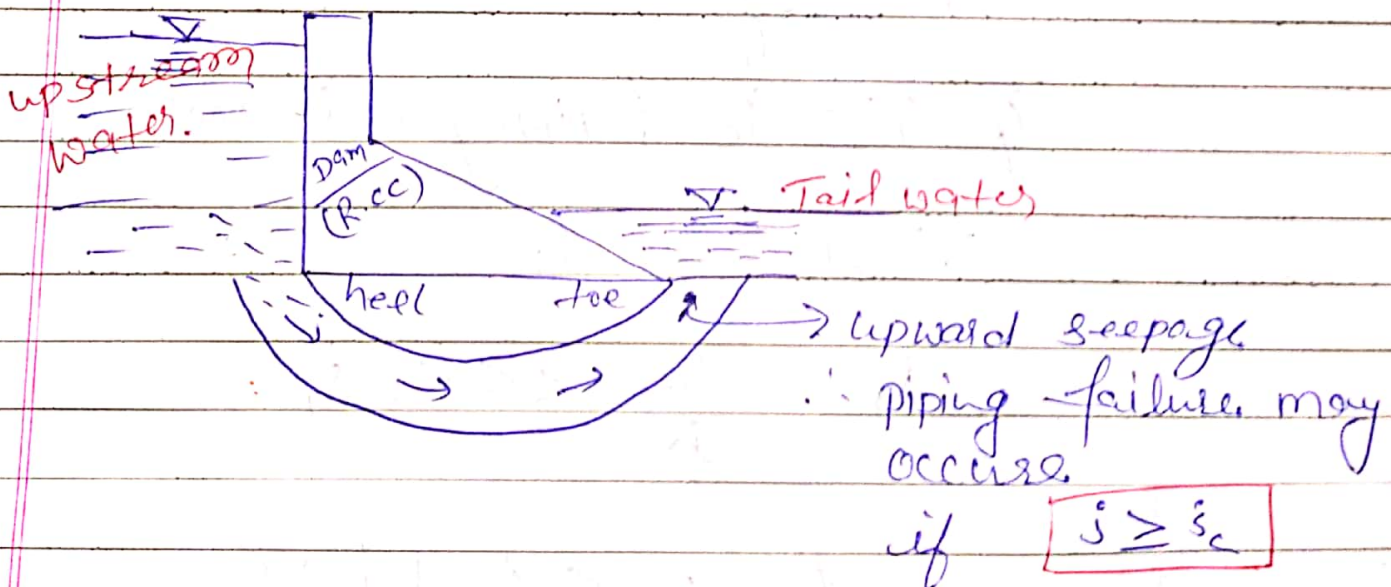 upstream
water.
Dam
(R.CC)
Tail water
heel toe
→ upward seepage
∴ piping failure may
occure
if i ≥ ic